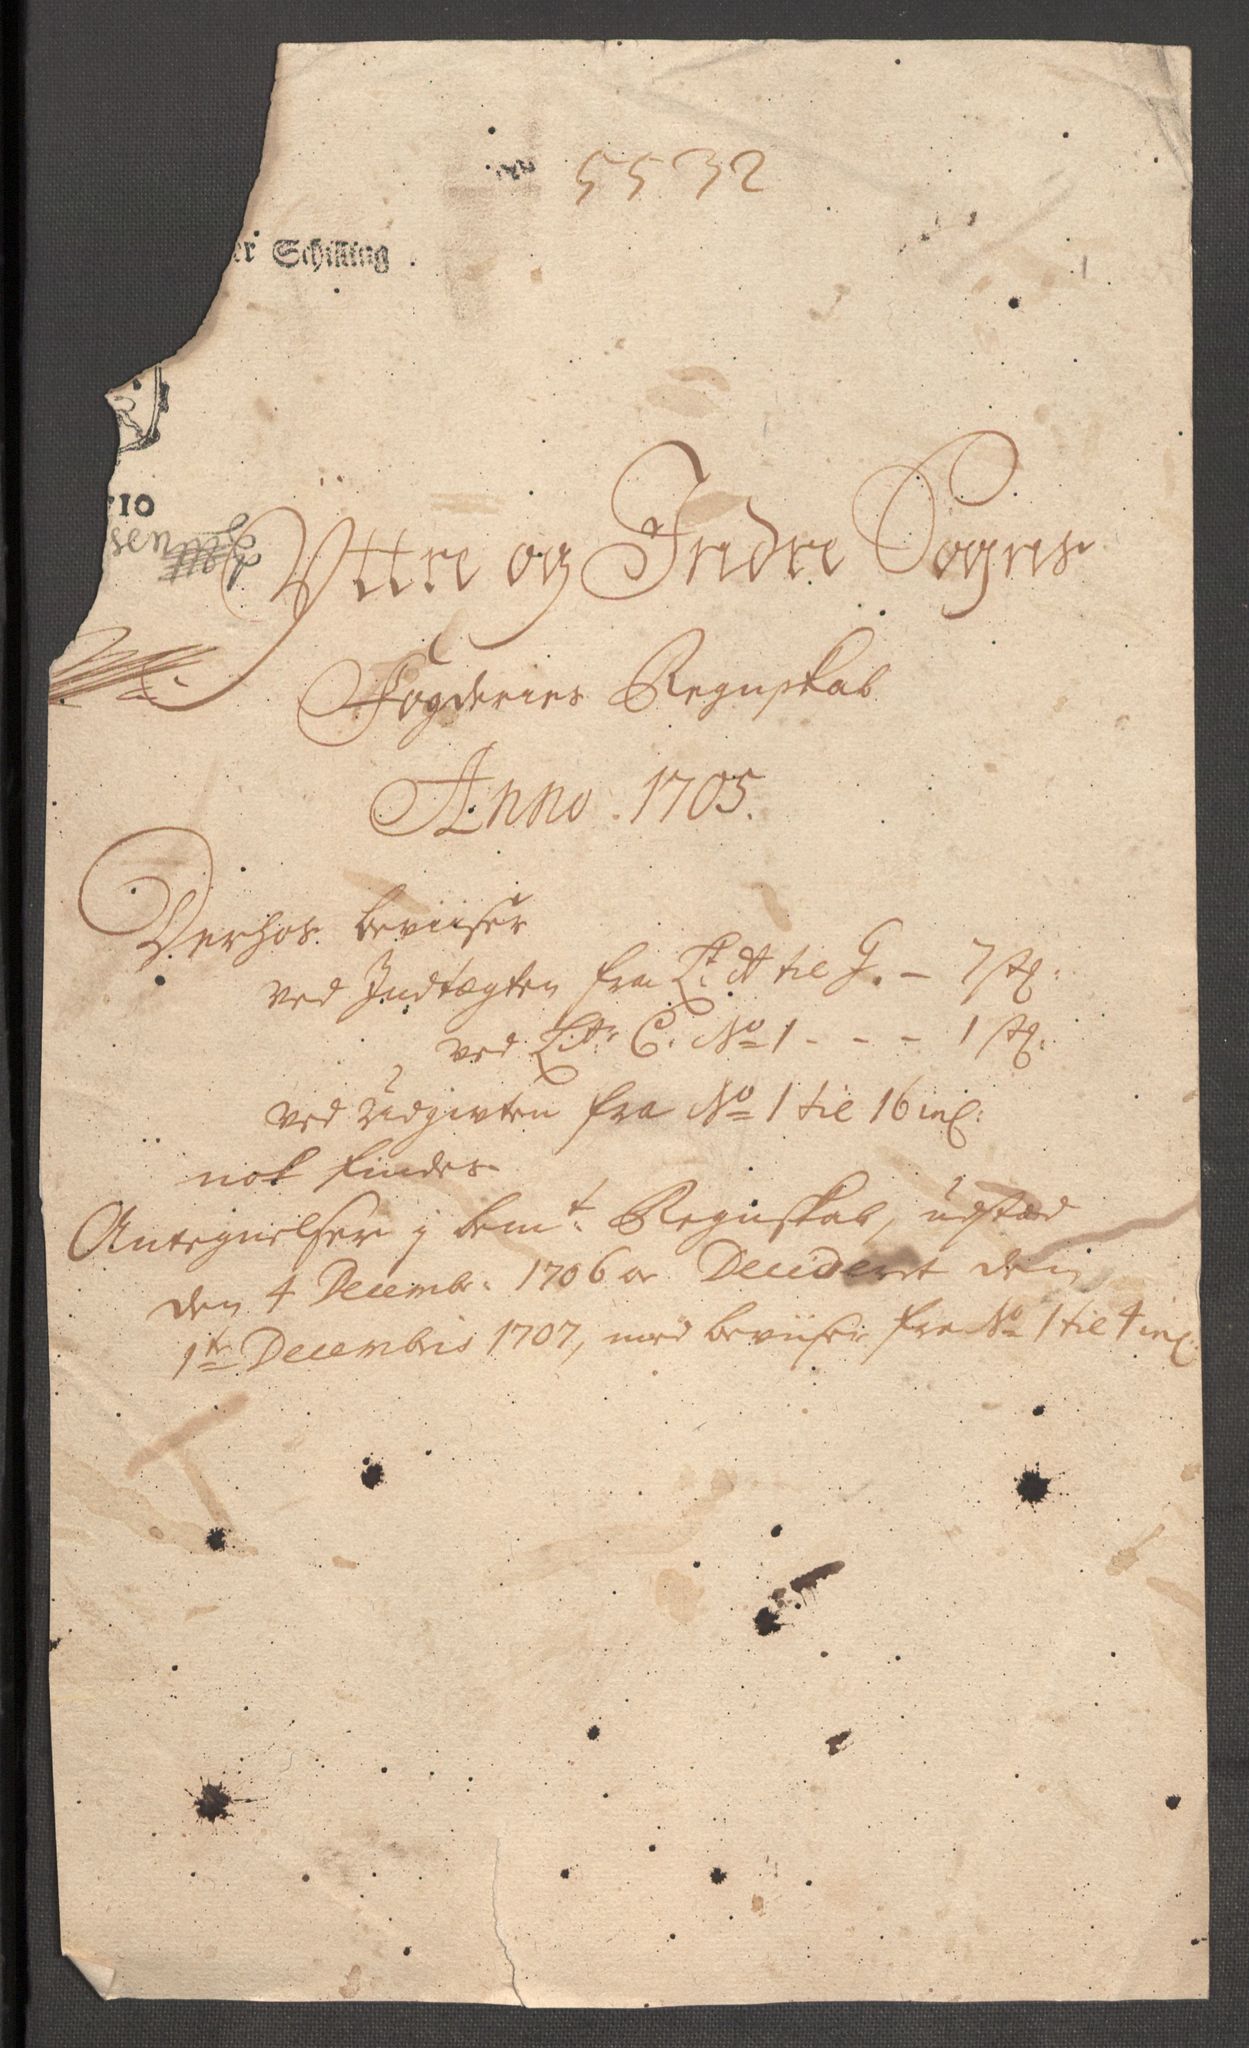 5532
er Schilling
10
sen
Yttre og Indre Sogns
Fogderies Regnskab
Anno. 1705.
Derhos beviiser
ved Indtægten fra Lt. A til G. – 7 st:
ved Littr C. No 1 - - - 1 st:
ved Udgivten fra No 1 til 16 incl:
nok findes
Antegnelser j bemt. Regnskab, udstæd
den 4 Decembr. 1706 oc Decideret den
1te Decembris 1707, med beviiser fra No 1 til 4 incl.